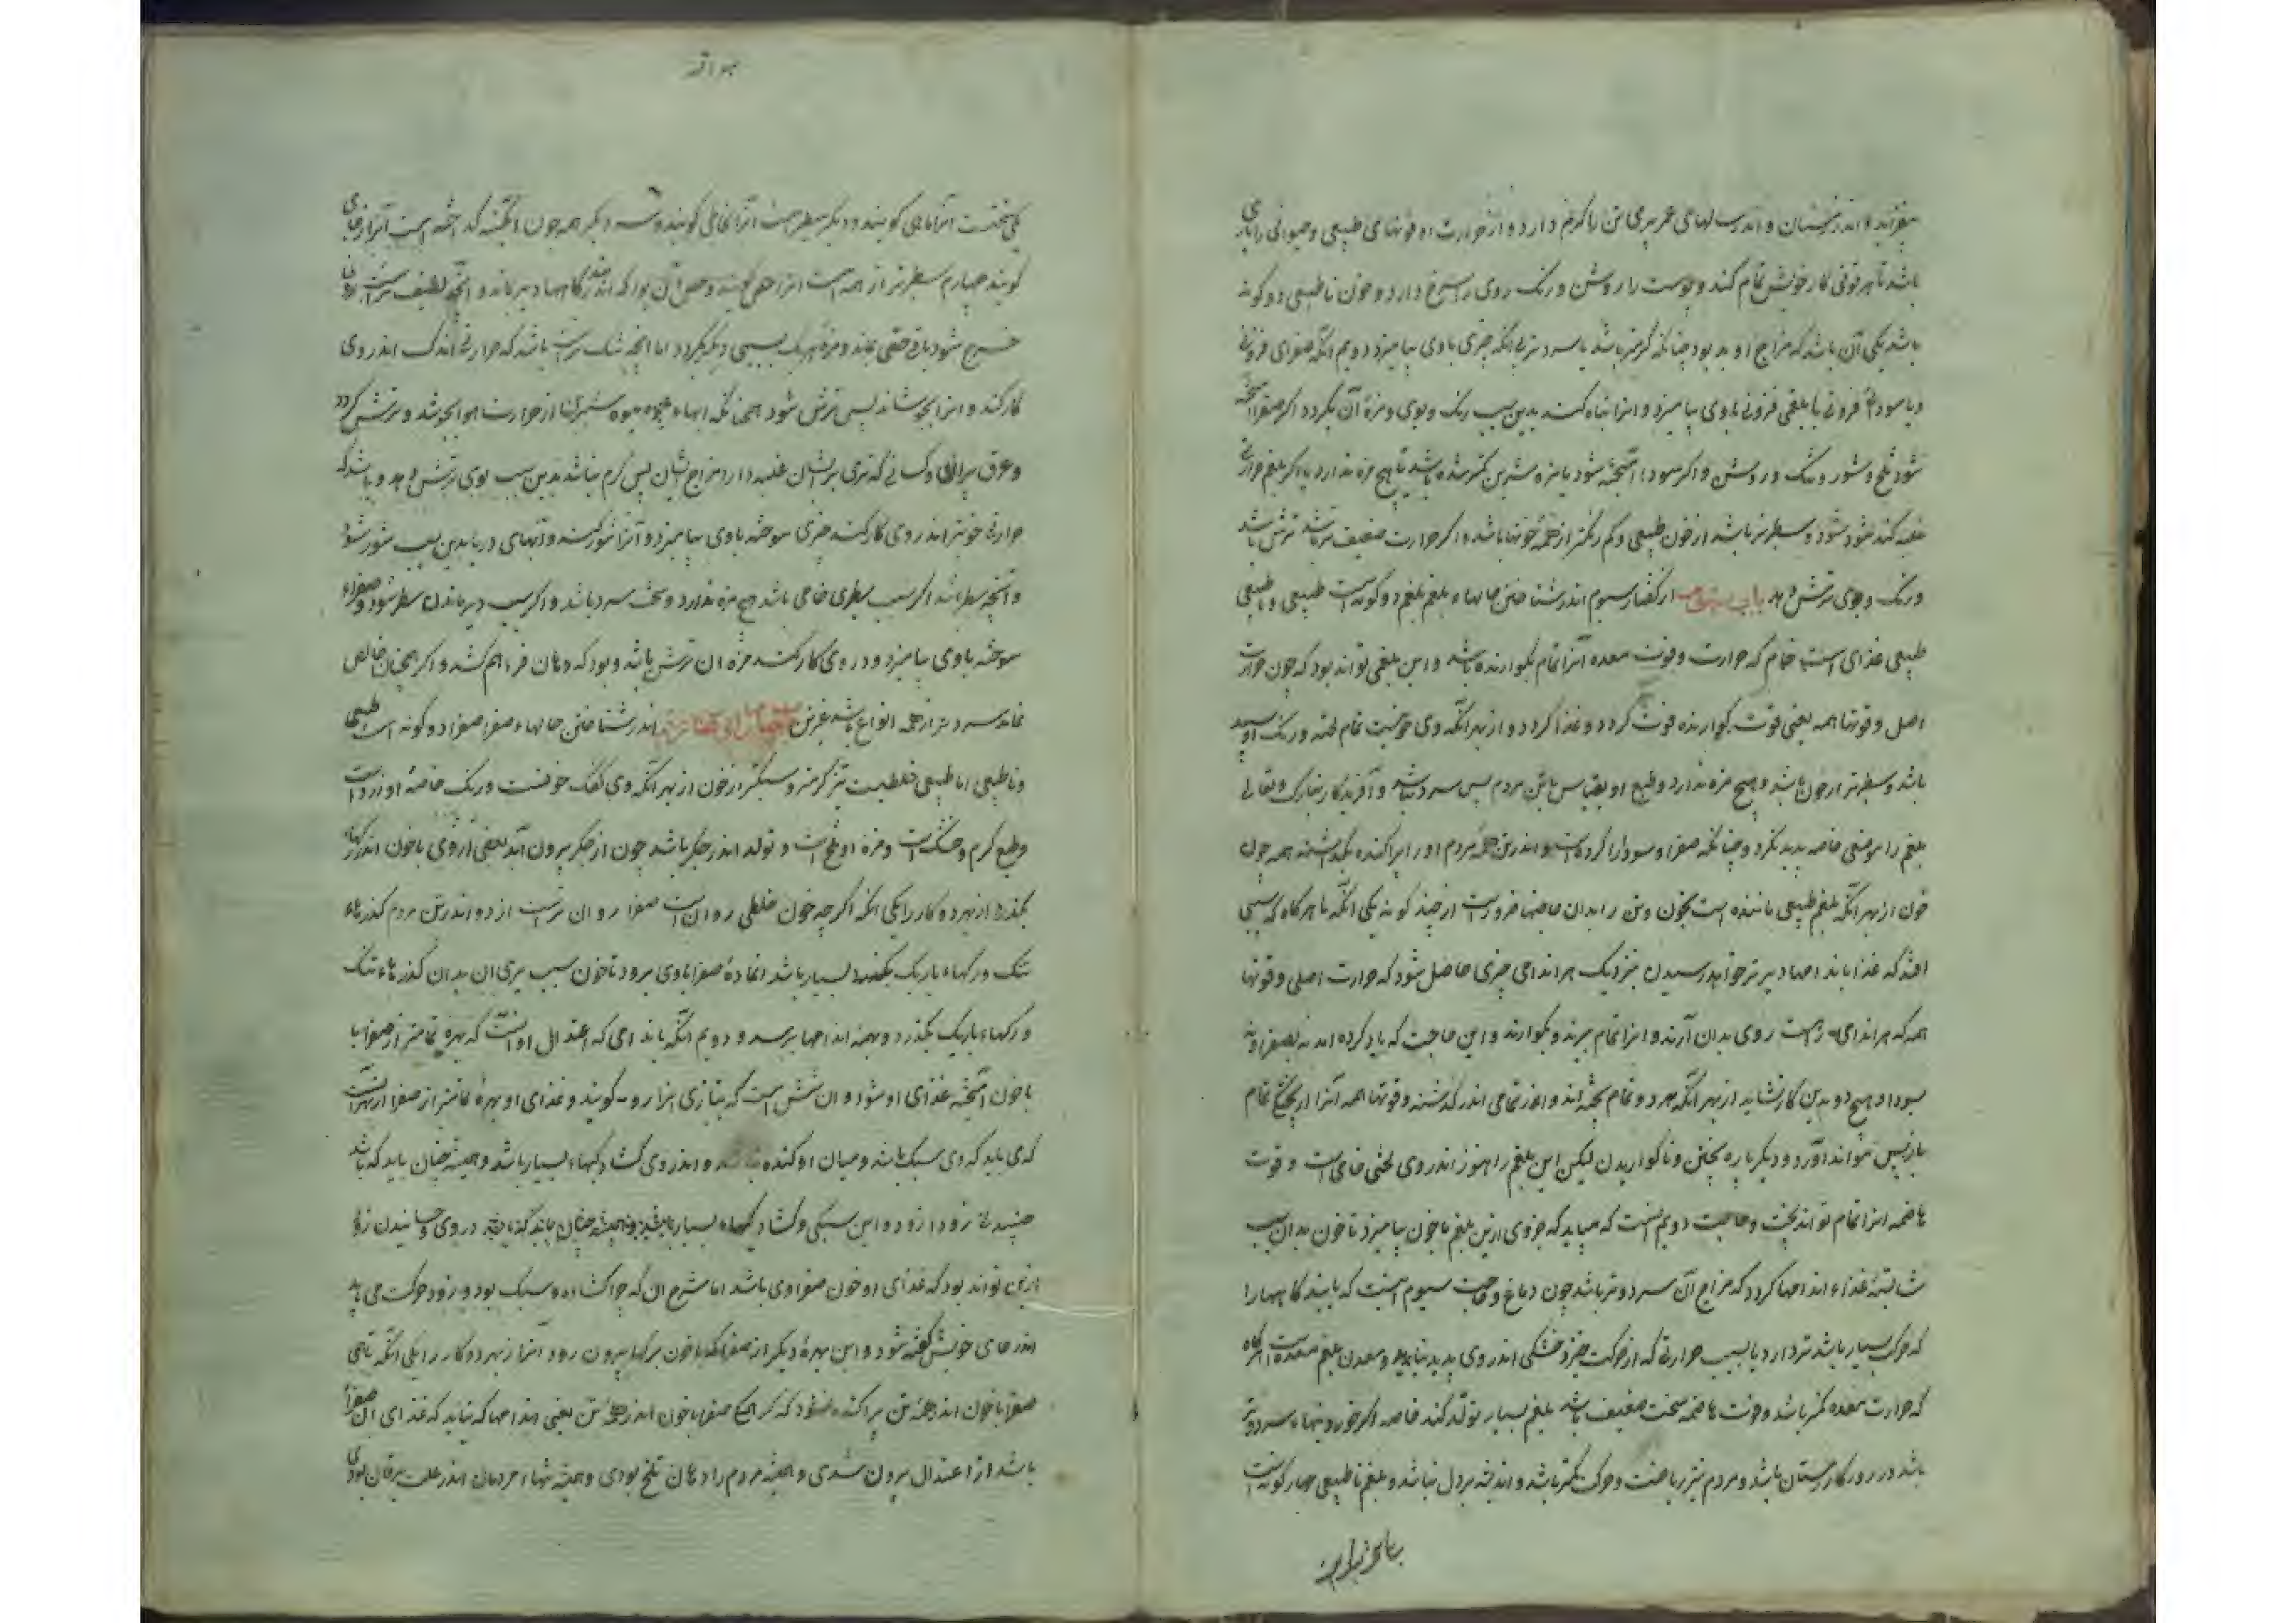 بیفزاید و اندر زمستان و اندر سالهای عمر پیری تن را گرم دارد و از حرارت او قوتهای طبیعی و حیوانی را یاری
باشد تا هر قوتی کار خویش تمام کند و پوست را روشن و رنگ روی را سرخ دارد و خون ناطبیعی دو گونه
باشد یکی آن باشد که مزاج او بد بود چنانکه گرمتر باشد یا سردتر بی آنکه چیزی با وی بیامیزد دویم آنکه صفرای فزونی
و یا سودای فزونی یا بلغمی فزونی با وی بیامیزد و او را تباه کند بدین سبب رنگ و بوی و مزه آن بگردد اگر صفرا آمیخته
شود تلخ و شور و تنک و روشن و اگر سودا آمیخته شود با مزه شیرین کمتر شده باشد یا هیچ مزه ندارد یا اگر بلغم
غلبه کند شود و سطبرتر باشد از خون طبیعی و کم رنگتر از جمله خونها باشد و اگر حرارت ضعیف تر باشد ترش باشد
و رنگ و بوی ترش دهد باب از گفتار سیوم اندر شناختن حالهاء بلغم بلغم دو گونه است طبیعی و ناطبیعی
طبیعی غذای است خام که حرارت و قوت معده آنرا تمام نگوارنده باشد و این بلغمی تواند بود که چون حرارت
اصل و قوتها همه یعنی قوت گوارنده قوت گردد و غذا گردد و از بهر آنکه وی خونیست تمام نپخته و رنگ او سپید
باشد و سطبرتر از خون باشد و هیچ مزه ندارد و طبع او بقیاس با تن مردم بس سرد نباشد و آفریدگار تبارک و تعالی
بلغم را موضعی خاصه پدید نکرد چنانکه صفرا و سودا را کردست و اندر تن جمله مردم او را پراکنده بگذاشته همه چون
خون از بهر آنکه بلغم طبیعی ماننده است بخون و تن را بدان حاجتها ضرورست از چند گونه یکی آنکه تا هر گاه که سببی
افتد که غذا باندامها دیرتر خواهد رسیدن بنزدیک هر اندامی چیزی حاصل شود که حرارت اصلی و قوتها
همه که هر اندامی راست روی بدان آرند و آنرا تمام بپزند و بگوارند و این حاجت که یاد کرده امد نه بصفرا و نه
بسودا و هیچ دو بدین کار نشاید از بهر آنکه هر دو تمام پخته اند و اندر تمامی اندر گذشته و قوتها همه آنرا از پختگی تمام
بازپس نتواند آورد و دیگرباره پختن و ناگواریدن لیکن این بلغم را هنوز اندر وی لختی خامی است و قوت
هاضمه آنرا تمام تواند پخت و حاجت دویم آنست که میباید که جزوی ازین بلغم با خون بیامیزد تا خون بدان سبب
شایسته غذاء اندامها گردد که مزاج آن سرد و تر باشد چون دماغ و حاجت سیوم آنست که بندگاهها را
که حرکت بسیار باشد تر دارد تا بسبب حرارتی که از حرکت خیزد خشکی اندر وی پدید نیاید و معدن بلغم معده است هر گاه
که حرارت معده کمتر باشد و قوت هاضمه سخت ضعیف باشد بلغم بسیار تولد کند خاصه اگر خوردنیهاء سرد و تر
باشد و در روزگار زمستان باشد و مردم نیز ریاضت و حرکت کمتر باشد و اندیشه بر دل نباشد و بلغم ناطبیعی چهار گونه است
یکی نخست آنرا مائی گویند و دیگر سطبرست آنرا مخاطی گویند و سه دیگر همه چون آبگینه گداخته است آنرا زجاجی
گویند چهارم سطبرتر از همه است آنرا جصی گویند و جصی آن بود که اندر بندگاهها دیر بماند و آنچه لطیف ترست از وی
خرج شود باقی جصی بماند و مزه هر یک بسببی دیگر بگردد اما آنچه تنک ترست باشد که حرارتی اندک اندر وی
کار کند و او را بجوشاند پس ترش شود همچنانکه آبهاء میوه شیرین از حرارت هوا بجوشد و ترش گردد
و عرق پیران و کسانی که تری بر ایشان غلبه دارد مزاج ایشان بس گرم نباشد بدین سبب بوی ترش دهد و باشد که
حرارتی خوبتر اندر وی کار کند چیزی سوخته با وی بیامیزد و آنرا شور کند و آبهای دریا بدین سبب شور شود
و آنچه سطبر باشد اگر سبب سطبری خامی باشد هیچ مزه ندارد و سخت سرد باشد و اگر سبب دیر ماندن سطبر شود و صفراء
سوخته با وی بیامیزد و در وی کار کند مزه آن ترش باشد و بود که دهان فراهم کشد و اگر همچنان خالص
بماند سردتر از جمله انواع باشد اندر شناختن حالهاء صفرا صفرا دو گونه است طبیعی
و ناطبیعی اما طبیعی خلطیست تیز گرمتر و سبکتر از خون از بهر آنکه وی کفک خونست و رنگ خاصه او زردست
و طبع گرم و خشک است و مزه او تلخ است و تولد اندر جگر باشد چون از جگر بیرون آید بعضی از وی با خون اندر رگها
بگذرد از بهر دو کار را یکی آنکه اگر چه خون خلطی روان است صفرا روان ترست از او و اندر تن مردم گذرهاء
تنک و رگهاء باریک بسیار باشد صفرا با وی برود تا خون بسبب تیزی آن بدان گذرهاء تنک
و رگهاء باریک بگذرد و بهمه اندامها برسد و دویم آنکه باندامی که اعتدال او آنست که بهره تمامتر از صفرا با
با خون آمیخته غذای او شود و آن شش است که بتازی گویند و غذای او بهره تمامتر از صفرا از بهر آنست
که وی باید که وی سبک باشد و میان او کنده باشد و اندر وی گشادگیهاء بسیار باشد و همیشه چنان باید که باشد
این سبکی و گشادگیهاء بسیار در وی
ازین تواند بود که غذای او خون صفراوی باشد اما شرح آن که چرا گشاده و سبک بود و زود حرکت می باید
اندر جای خویش گفته شود و این بهره دیگر از صفرا که با خون برگها بیرون رود آنرا از بهر دو کار را یکی آنکه تا می
صفرا با خون اندر جمله تن پراکنده نشود که گر همه صفرا با خون اندر جمله تن یعنی اندامها که نباید که غذای آن صفرا
باشد از اعتدال بیرون شدی و همیشه مردم را دهان تلخ بودی و همیشه مردمان اندر علت یرقان بودی